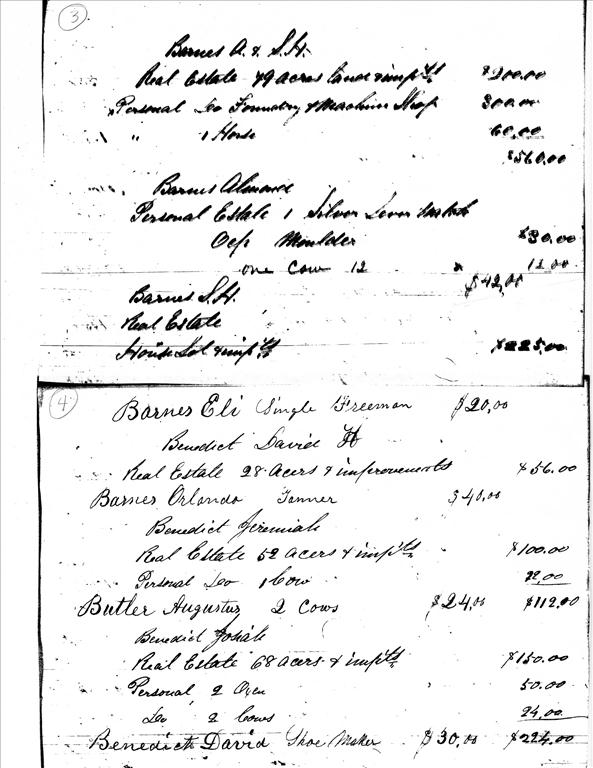 3
Barnes A. & S.H.
Real Estate 49 acres land & impts $200.00
Personal Do Foundry & Machine Shop 300.00
" 1 Horse 60.00
$560.00
Barnes Almond
Personal Estate 1 Silver Lever Watch
Ocp Moulder $30.00
one Cow 12 12.00
$42,00
Barnes S.H.
Real Estate
House Lot & impts $225.00
4
Barnes Eli Single Freeman $20,00
Benedict David H
Real Estate 28 Acers & improvements $56.00
Barnes Orlando Tanner $40,00
Benedict Jeremiah
Real Estate 52 acers & impts $100.00
Personal Do 1 Cow 12,00
Butler Augustus 2 Cows $24,00 $112.00
Benedict Josiah
Real Estate 68 acers & impts $150.00
Personal 2 Oxen 50.00
Do 2 Cows 24,00
Benedict David Shoe Maker $30,00 $224.00